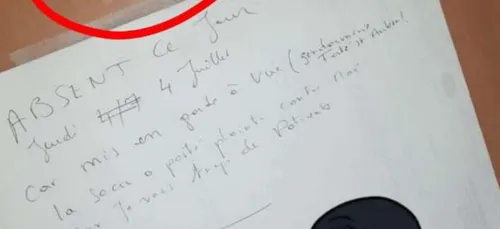 ABSENT CE Jour
Jeudi 4 Juillet
Car mis en garde à vue (gendarmerie
la Secu a porté plainte contre Moi
Car Je vois trop de Patients